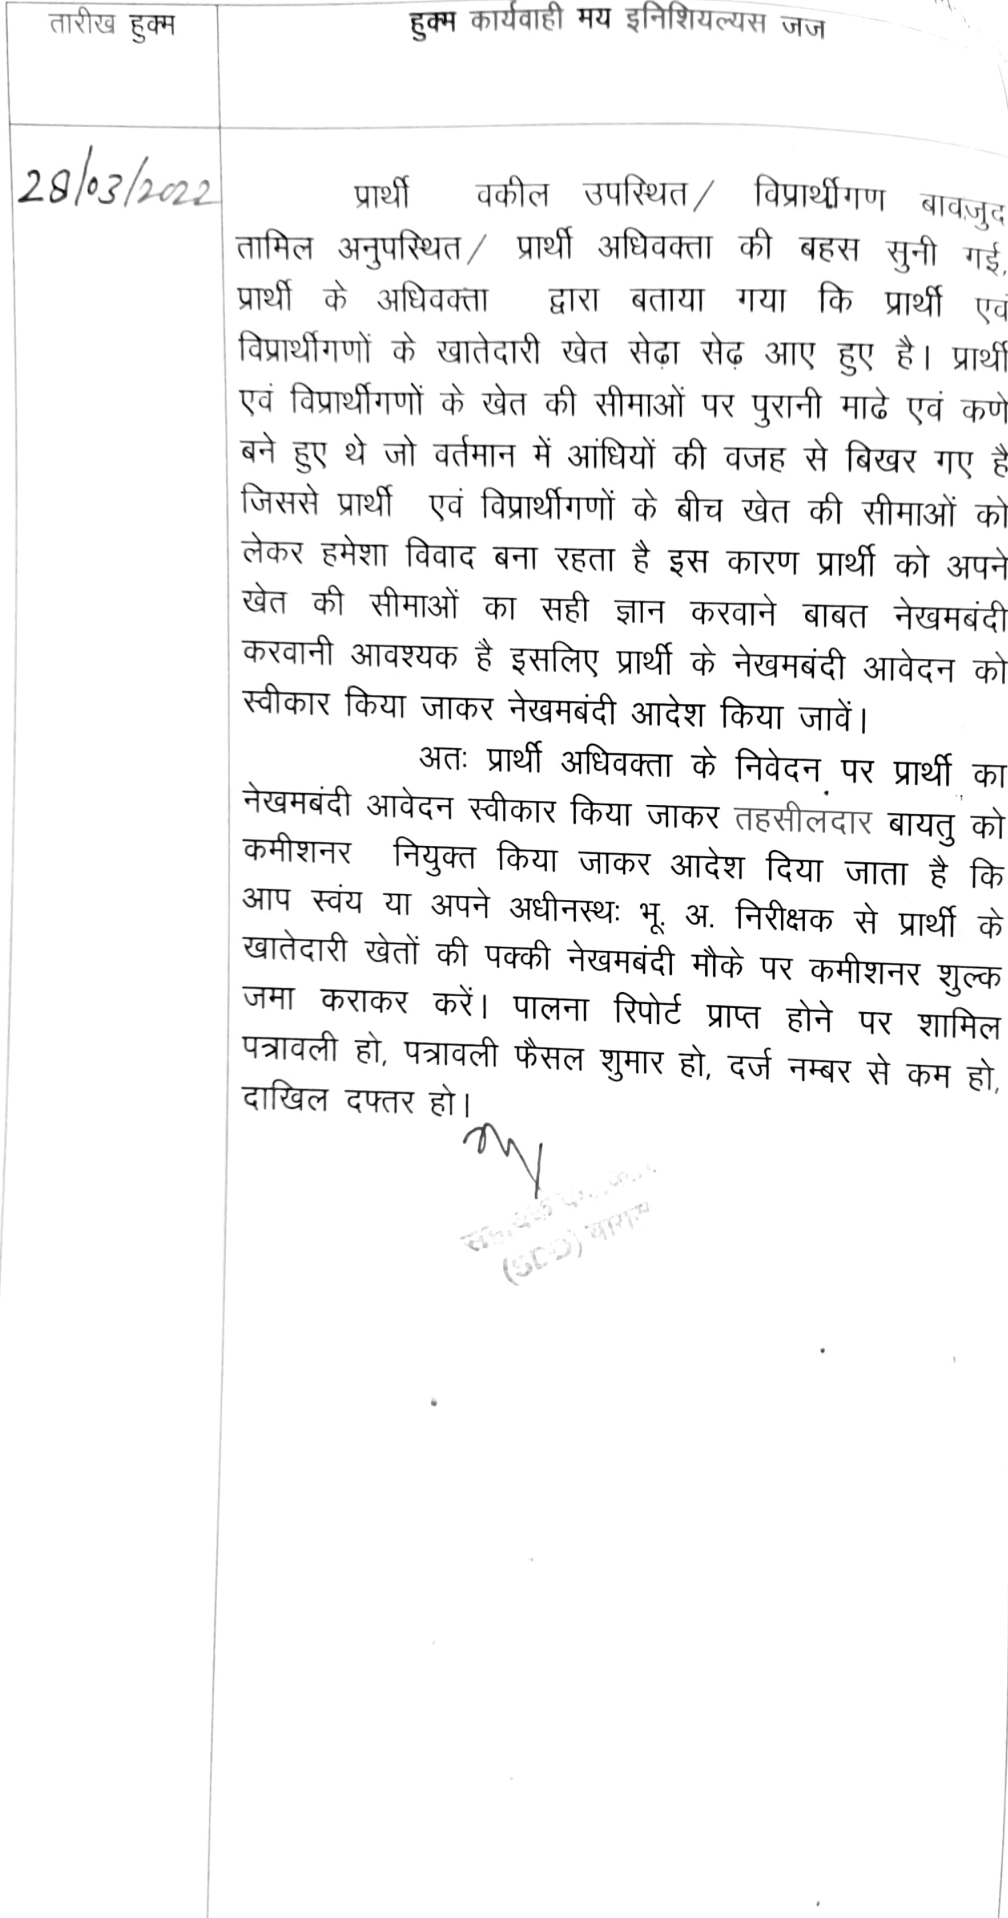 तारीख हुक्म
हुक्म कार्यवाही मय इनिशियल्यस जज
28/03/2022
प्रार्थी वकील उपस्थित/ विप्रार्थीगण बावजुद
तामिल अनुपस्थित/ प्रार्थी अधिवक्ता की बहस सुनी गई,
प्रार्थी के अधिवक्ता द्वारा बताया गया कि प्रार्थी एवं
विप्रार्थीगणों के खातेदारी खेत सेढ़ा सेढ़ आए हुए है। प्रार्थी
एवं विप्रार्थीगणों के खेत की सीमाओं पर पुरानी माढे एवं कणे
बने हुए थे जो वर्तमान में आंधियों की वजह से बिखर गए है
जिससे प्रार्थी एवं विप्रार्थीगणों के बीच खेत की सीमाओं को
लेकर हमेशा विवाद बना रहता है इस कारण प्रार्थी को अपने
खेत की सीमाओं का सही ज्ञान करवाने बाबत नेखमबंदी
करवानी आवश्यक है इसलिए प्रार्थी के नेखमबंदी आवेदन को
स्वीकार किया जाकर नेखमबंदी आदेश किया जावें।
अतः प्रार्थी अधिवक्ता के निवेदन पर प्रार्थी का
नेखमबंदी आवेदन स्वीकार किया जाकर तहसीलदार बायतु को
कमीशनर नियुक्त किया जाकर आदेश दिया जाता है कि
आप स्वंय या अपने अधीनस्थः भू. अ. निरीक्षक से प्रार्थी के
खातेदारी खेतों की पक्की नेखमबंदी मौके पर कमीशनर शुल्क
जमा कराकर करें। पालना रिपोर्ट प्राप्त होने पर शामिल
पत्रावली हो, पत्रावली फैसल शुमार हो, दर्ज नम्बर से कम हो,
दाखिल दफ्तर हो।
(SDO)